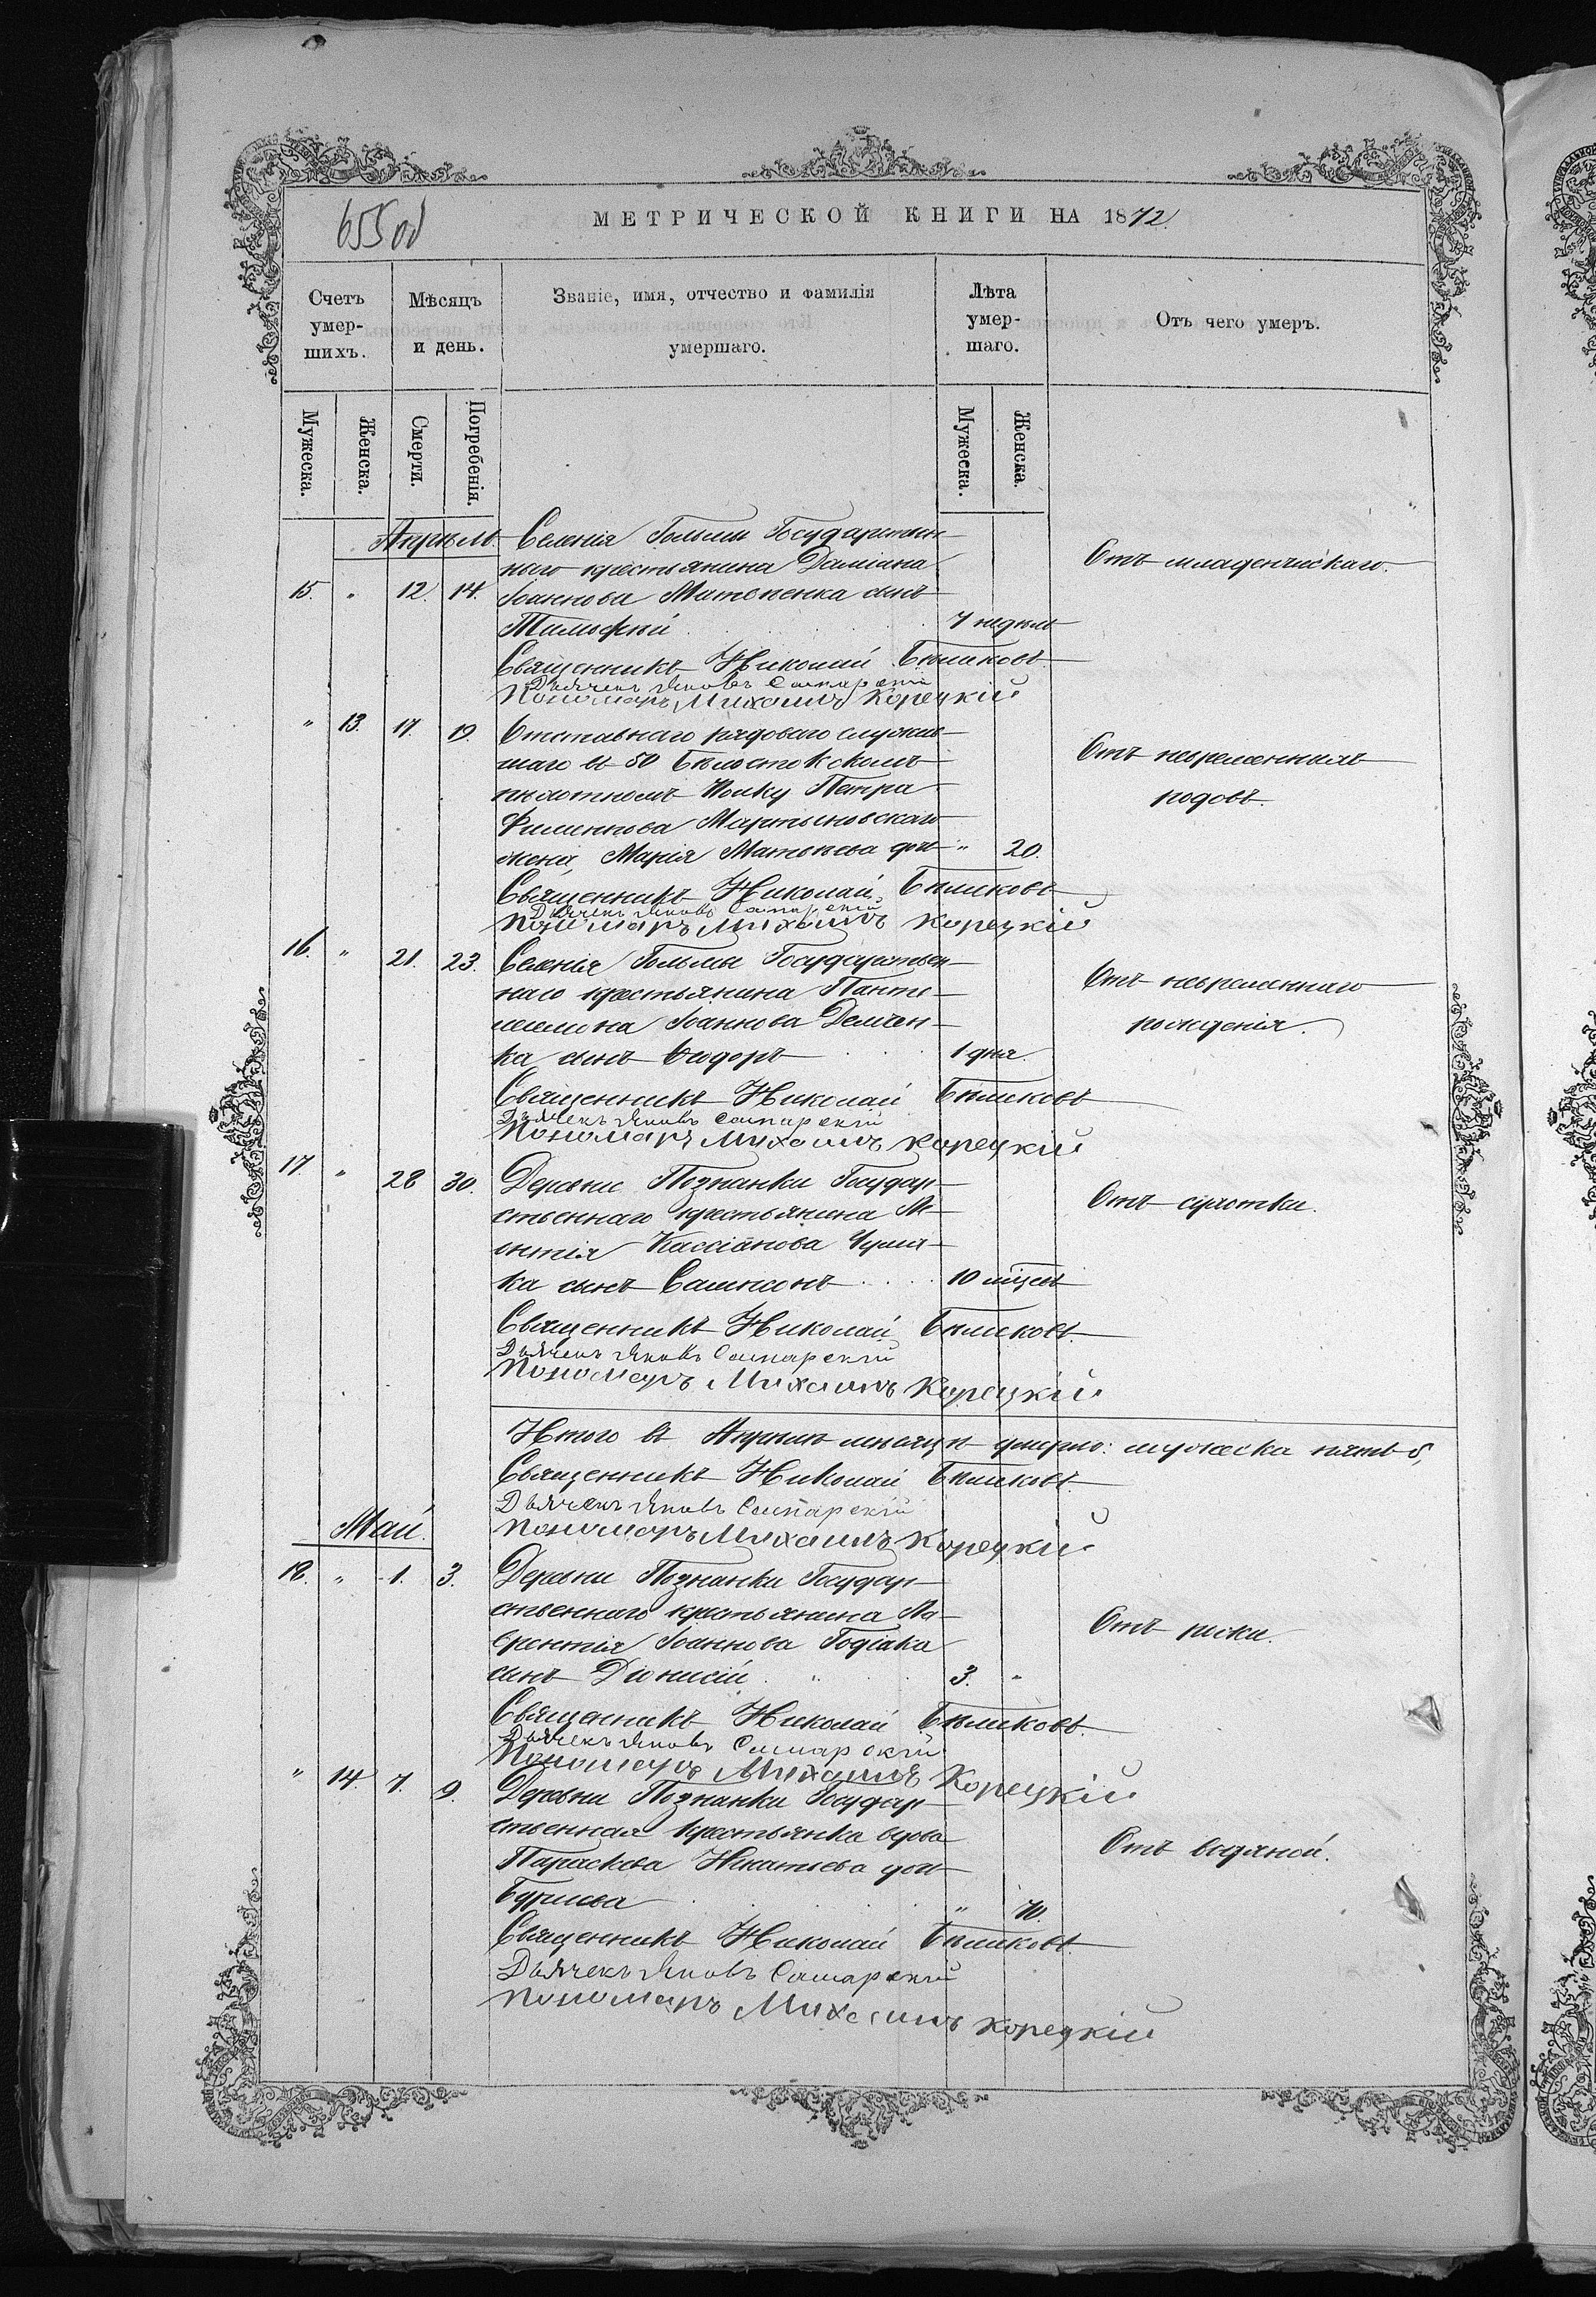 655 об
МЕТРИЧЕСКОЙ КНИГИ НА 1872.
Счетъ умер-шихъ.
Мѣсяцъ и день.
Званіе, имя, отчество и фамилія умершаго.
Лѣта умер-шаго.
Отъ чего умеръ.
Мужеска.
Женска.
Смерти.
Погребенія.
Мужеска.
Женска.
Апрѣль.
Селенія Гольмы Государствен-
наго крестьянина Даміана
15. " 12. 14. Іоаннова сынъ
Тимофѣй 7 недѣль
Отъ младенческаго.
Священникъ Николай Бѣликовъ
Дьячекъ Яковъ Самарскій
Пономарь Михаилъ Корецкій
" 13. 17. 19. Отставнаго рядоваго служив-
шаго въ 50 Бѣлостокскомъ
пѣхотномъ Полку Петра
Филиппова Мартыновскаго
жена, Марія Матѳеева " 20.
Отъ невременныхъ
родовъ.
Священникъ Николай Бѣликовъ
Дьячекъ Яковъ Самарскій
Пономарь Михаилъ Корецкій
16. " 21. 23. Селенія Гольмы Государствен-
наго крестьянина Панте-
леимона Іоаннова Демчен-
ка сынъ Ѳеодоръ 1 дня
Отъ невременнаго
рожденія.
Священникъ Николай Бѣликовъ
Дьячекъ Яковъ Самарскій
Пономарь Михаилъ Корецкій
17. " 28 30. Деревни Познанки Государ-
ственнаго крестьянина Ле-
онтія Кассіанова
ка сынъ Сампсонъ 10 мѣсяц
Отъ сухотки.
Священникъ Николай Бѣликовъ.
Дьячекъ Яковъ Самарскій
Пономарь Михаилъ Корецкій
Итого въ Апрѣлѣ мѣсяцѣ умерло: мужеска пять 5,
Священникъ Николай Бѣликовъ.
Дьячекъ Яковъ Самарскій
Пономарь Михаилъ Корецкій
Май.
18. " 1. 3. Деревни Познанки Государ-
ственнаго крестьянина Ла-
врентія Іоаннова Годіака
сынъ Діонисій 3. "
Отъ
Священникъ Николай Бѣликовъ.
Дьячекъ Яковъ Самарскій
Пономарь Михаилъ Корецкій
" 14. 7. 9. Деревни Познанки Государ-
ственная крестьянка вдова
Параскева
" 70.
Отъ водяной.
Священникъ Николай Бѣликовъ.
Дьячекъ Яковъ Самарскій
Пономарь Михаилъ Корецкій